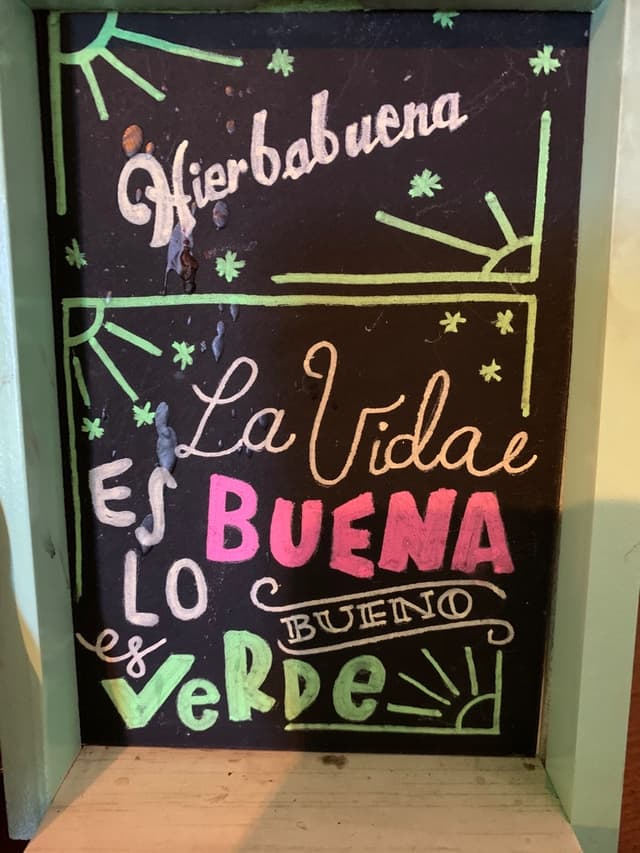 Hierbabuena
La Vida
ES BUENA
LO BUENO
es VeRDe